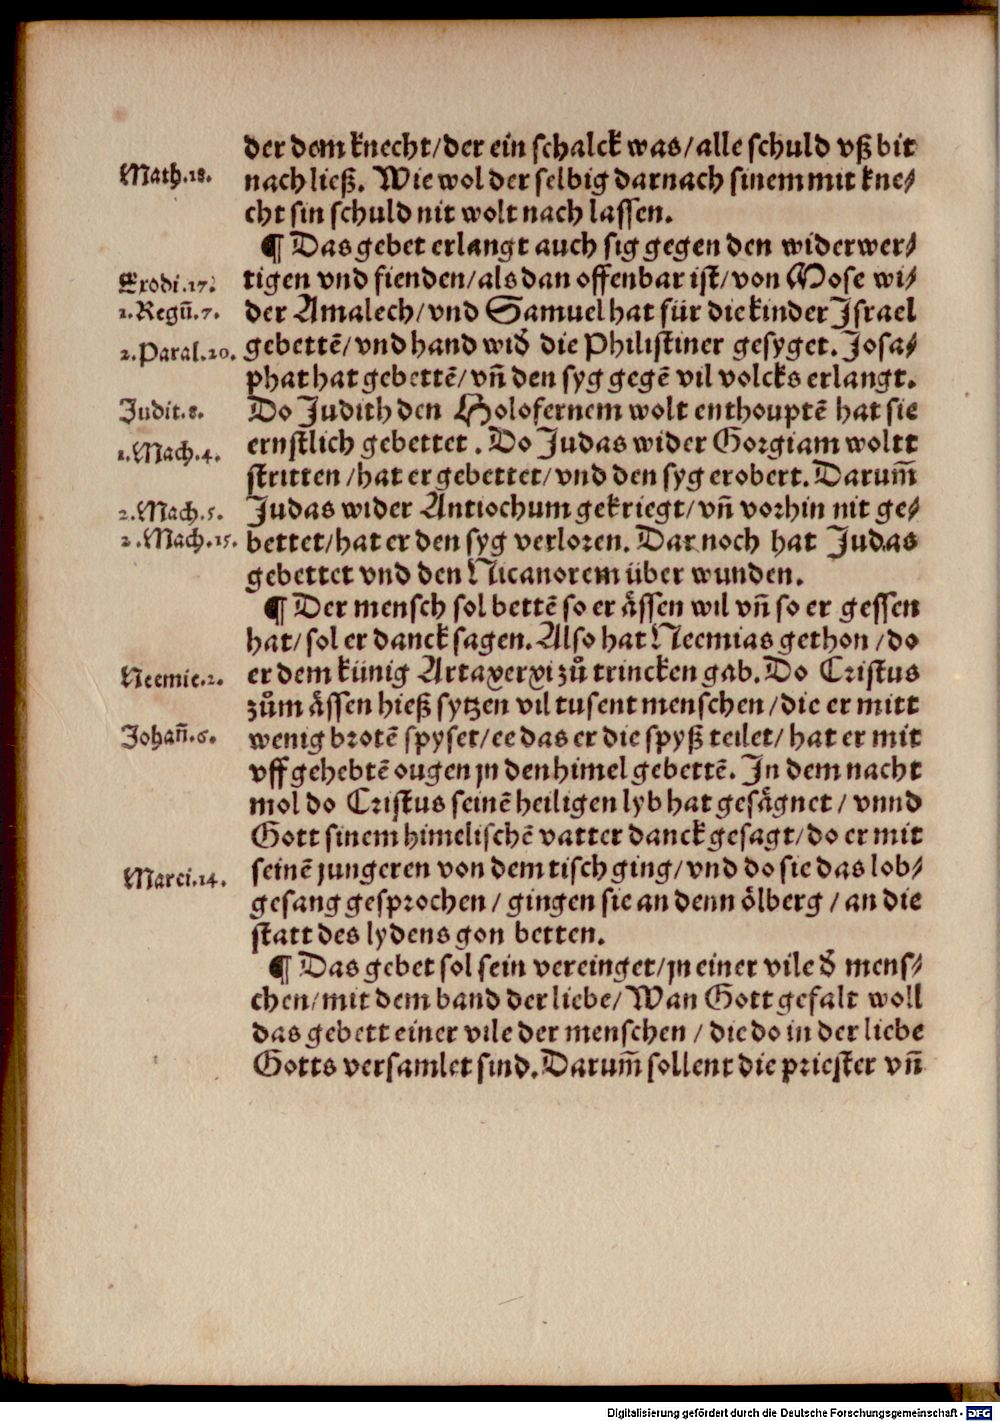 der dem knecht/der ein schalck was/alle schuld vß bit
Math.18.
nach ließ. Wie wol der selbig darnach sinem mit kne⸗
cht sin schuld nit wolt nach lassen.
¶ Das gebet erlangt auch sig gegen den widerwer⸗
Exodi.17.
tigen vnd fienden/als dan offenbar ist/von Mose wi⸗
1.Regū.7.
der Amalech/vnd Samuel hat für die kinder Israel
2.Paral.20.
gebettē/vnd hand wid̕ die Philistiner gesyget. Josa⸗
phat hat gebettē/vn̄ den syg gegē vil volcks erlangt.
Judit.8.
Do Judith den Holofernem wolt enthouptē hat sie
1.Mach.4.
ernstlich gebettet. Do Judas wider Gorgiam woltt
stritten/hat er gebettet/vnd den syg erobert. Darum̄
2.Mach.5.
Judas wider Antiochum gekriegt/vn̄ vorhin nit ge⸗
2.Mach.15.
bettet/hat er den syg verloren. Dar noch hat Judas
gebettet vnd den Nicanorem über wunden.
¶ Der mensch sol bettē so er ässen wil vn̄ so er gessen
hat/sol er danck sagen. Also hat Neemias gethon/do
Neemie.2.
er dem künig Artaxerxi zů trincken gab. Do Cristus
zům ässen hieß sytzen vil tusent menschen/die er mitt
Johan̄.6.
wenig brotē spyset/ee das er die spyß teilet/hat er mit
vff gehebtē ougen jn den himel gebettē. In dem nacht
mol do Cristus seinē heiligen lyb hat gesägnet/vnnd
Gott sinem himelischē vatter danck gesagt/do er mit
Marci.14.
seinē jungeren von dem tisch ging/vnd do sie das lob⸗
gesang gesprochen/gingen sie an denn ölberg/an die
statt des lydens gon betten.
¶ Das gebet sol sein vereinget/jn einer vile d̕ mens⸗
chen/mit dem band der liebe/Wan Gott gefalt woll
das gebett einer vile der menschen/die do in der liebe
Gotts versamlet sind. Darum̄ sollent die priester vn̄
Digitalisierung gefördert durch die Deutsche Forschungsgemeinschaft - DFG